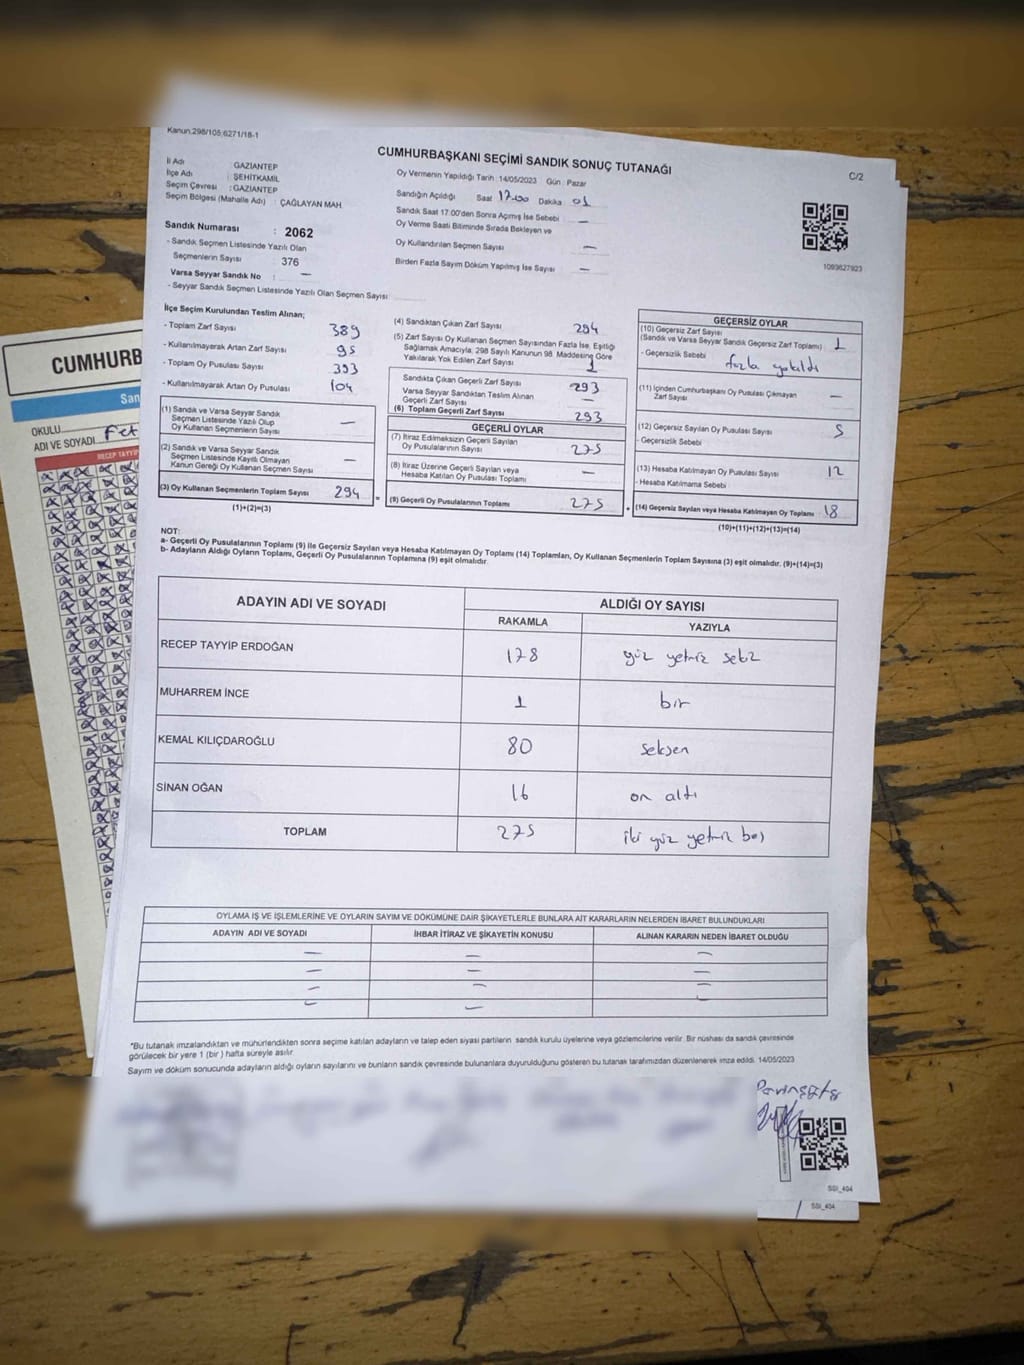 Kanun:298/105;6271/18-1
CUMHURBAŞKANI SEÇİMİ SANDIK SONUÇ TUTANAĞI
C/2
İl Adı GAZİANTEP
İlçe Adı : ŞEHİTKAMİL
Seçim Çevresi : GAZİANTEP
Seçim Bölgesi (Mahalle Adı) : ÇAĞLAYAN MAH.
Oy Vermenin Yapıldığı Tarih : 14/05/2023 Gün : Pazar
Sandığın Açıldığı Saat 17.00 Dakika 01
Sandık Saat 17:00'den Sonra Açımış İse Sebebi —
Oy Verme Saati Bitiminde Sırada Bekleyen ve
Oy Kullandırılan Seçmen Sayısı —
Birden Fazla Sayım Döküm Yapılmış İse Sayısı —
1093627923
Sandık Numarası : 2062
- Sandık Seçmen Listesinde Yazılı Olan
Seçmenlerin Sayısı : 376
Varsa Seyyar Sandık No : —
- Seyyar Sandık Seçmen Listesinde Yazılı Olan Seçmen Sayısı :
İlçe Seçim Kurulundan Teslim Alınan;
- Toplam Zarf Sayısı 389
- Kullanılmayarak Artan Zarf Sayısı 95
- Toplam Oy Pusulası Sayısı 393
- Kullanılmayarak Artan Oy Pusulası 104
(1) Sandık ve Varsa Seyyar Sandık
Seçmen Listesinde Yazılı Olup
Oy Kullanan Seçmenlerin Sayısı —
(2) Sandık ve Varsa Seyyar Sandık
Seçmen Listesinde Kayıtlı Olmayan
Kanun Gereği Oy Kullanan Seçmen Sayısı —
(3) Oy Kullanan Seçmenlerin Toplam Sayısı 294
(1)+(2)=(3)
(4) Sandıktan Çıkan Zarf Sayısı 294
(5) Zarf Sayısı Oy Kullanan Seçmen Sayısından Fazla İse, Eşitliği
Sağlamak Amacıyla, 298 Sayılı Kanunun 98. Maddesine Göre
Yakılarak Yok Edilen Zarf Sayısı 1
Sandıkta Çıkan Geçerli Zarf Sayısı 293
Varsa Seyyar Sandıktan Teslim Alınan
Geçerli Zarf Sayısı —
(6) Toplam Geçerli Zarf Sayısı 293
GEÇERLİ OYLAR
(7) İtiraz Edilmeksizin Geçerli Sayılan
Oy Pusulalarının Sayısı 275
(8) İtiraz Üzerine Geçerli Sayılan veya
Hesaba Katılan Oy Pusulası Toplamı —
(9) Geçerli Oy Pusulalarının Toplamı 275
GEÇERSİZ OYLAR
(10) Geçersiz Zarf Sayısı
(Sandık ve Varsa Seyyar Sandık Geçersiz Zarf Toplamı) 1
- Geçersizlik Sebebi fazla yakıldı
(11) İçinden Cumhurbaşkanı Oy Pusulası Çıkmayan
Zarf Sayısı —
(12) Geçersiz Sayılan Oy Pusulası Sayısı 5
- Geçersizlik Sebebi
(13) Hesaba Katılmayan Oy Pusulası Sayısı 12
- Hesaba Katılmama Sebebi
(14) Geçersiz Sayılan veya Hesaba Katılmayan Oy Toplamı 18
(10)+(11)+(12)+(13)=(14)
NOT:
a- Geçerli Oy Pusulalarının Toplamı (9) ile Geçersiz Sayılan veya Hesaba Katılmayan Oy Toplamı (14) Toplamları, Oy Kullanan Seçmenlerin Toplam Sayısına (3) eşit olmalıdır. (9)+(14)=(3)
b- Adayların Aldığı Oyların Toplamı, Geçerli Oy Pusulalarının Toplamına (9) eşit olmalıdır.
ADAYIN ADI VE SOYADI ALDIĞI OY SAYISI
RAKAMLA YAZIYLA
RECEP TAYYİP ERDOĞAN 178 yüz yetmiş sekiz
MUHARREM İNCE 1 bir
KEMAL KILIÇDAROĞLU 80 seksen
SİNAN OĞAN 16 on altı
TOPLAM 275 iki yüz yetmiş beş
OYLAMA İŞ VE İŞLEMLERİNE VE OYLARIN SAYIM VE DÖKÜMÜNE DAİR ŞİKAYETLERLE BUNLARA AİT KARARLARIN NELERDEN İBARET BULUNDUKLARI
ADAYIN ADI VE SOYADI İHBAR İTİRAZ VE ŞİKAYETİN KONUSU ALINAN KARARIN NEDEN İBARET OLDUĞU
*Bu tutanak imzalandıktan ve mühürlendikten sonra seçime katılan adayların ve talep eden siyasi partilerin sandık kurulu üyelerine veya gözlemcilerine verilir. Bir nüshası da sandık çevresinde
görülecek bir yere 1 (bir ) hafta süreyle asılır.
Sayım ve döküm sonucunda adayların aldığı oyların sayılarını ve bunların sandık çevresinde bulunanlara duyurulduğunu gösteren bu tutanak tarafımızdan düzenlenerek imza edildi. 14/05/2023
SSI_404
SSI_404
CUMHURB
San
OKULU
ADI VE SOYADI Fet
RECEP TAYYİP